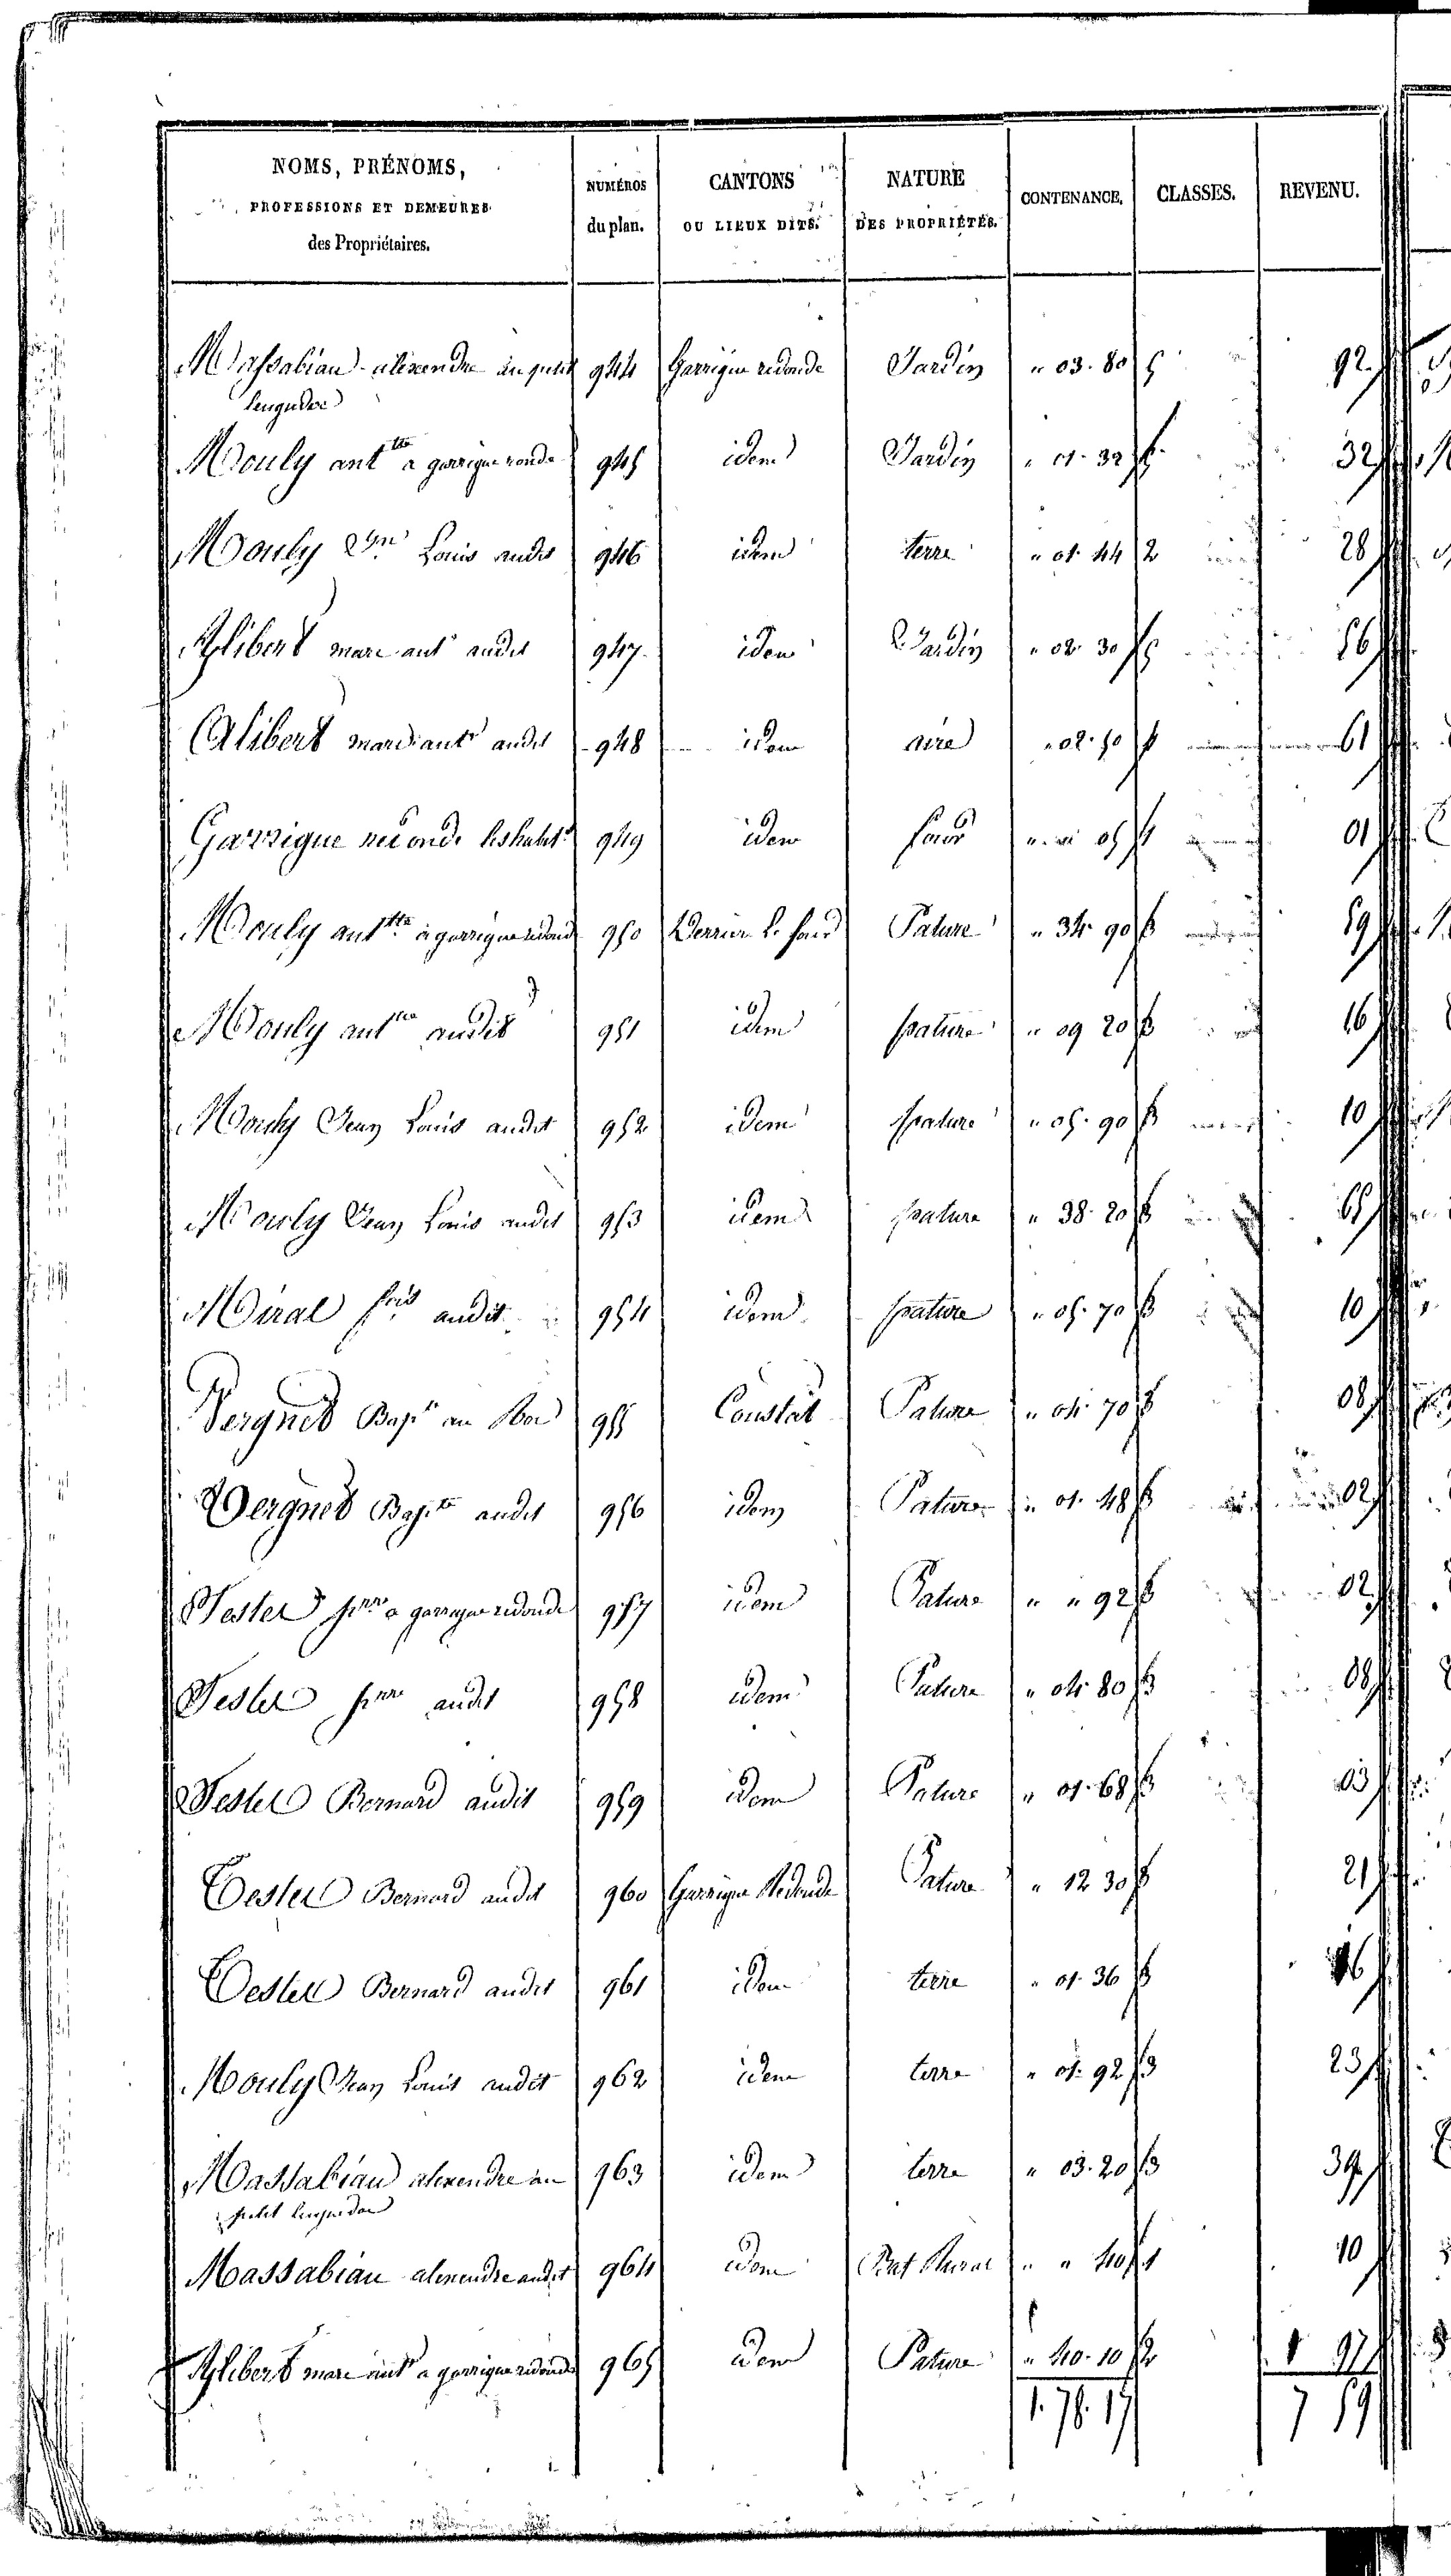 NOMS, PRÉNOMS, PROFESSIONS ET DEMEURES des Propriétaires. NUMÉROS du plan. CANTONS OU LIEUX DITS. NATURE DES PROPRIÉTÉS. CONTENANCE. CLASSES. REVENU.
Massabiau alixendre au petit 944 Garrigue redonde Jardin " 03. 80 5 92
lenguedoc
Mouly antte a garrigue ronde 945 idem Jardin " 01. 32 5 32
Mouly Louis audit 946 idem terre " 01. 44 2 28
Alibert marc ant audit 947 idem Jardin " 02. 30 5 56
Alibert marc ant audit 948 idem aire " 02. 50 61
Garrigue redonde les habts 949 idem four " " 05 1 01
Mouly antte a garrigue redonde 950 Derrier le four Pature " 34. 90 3 59
Mouly antte audit 951 idem pature " 09 20 3 16
Mouly Jean Louis audit 952 idem pature " 05. 90 3 10
Mouly Jean Louis audit 953 idem pature " 38. 20 3 65
Miral fois audit 954 idem pature " 05. 70 3 10
Vergnes Bapte au 955 Coustal Pature " 04. 70 3 08
Vergnes Bapte audit 956 idem Pature " 01. 48 3 02
Tester pierre a garrigue redonde 957 idem Pature " " 92 3 02
Tester pierre audit 958 idem Pature " 04 80 3 08
Tester Bernard audit 959 idem Pature " 01. 68 3 03
Tester Bernard audit 960 Garrigue Redonde Pature " 12 30 3 21
Tester Bernard audit 961 idem terre " 01. 36 3 16
Mouly Jean Louis audit 962 idem terre " 01. 92 3 23
Massabiau alexendre au 963 idem terre " 03. 20 3 39
petit lenguedoc
Massabiau alexendre audit 964 idem Bat Rural " " 40 1 10
Alibert marc ant a garrigue redonde 965 idem Pature " 40. 10 2 1 97
1. 78. 17 7 59